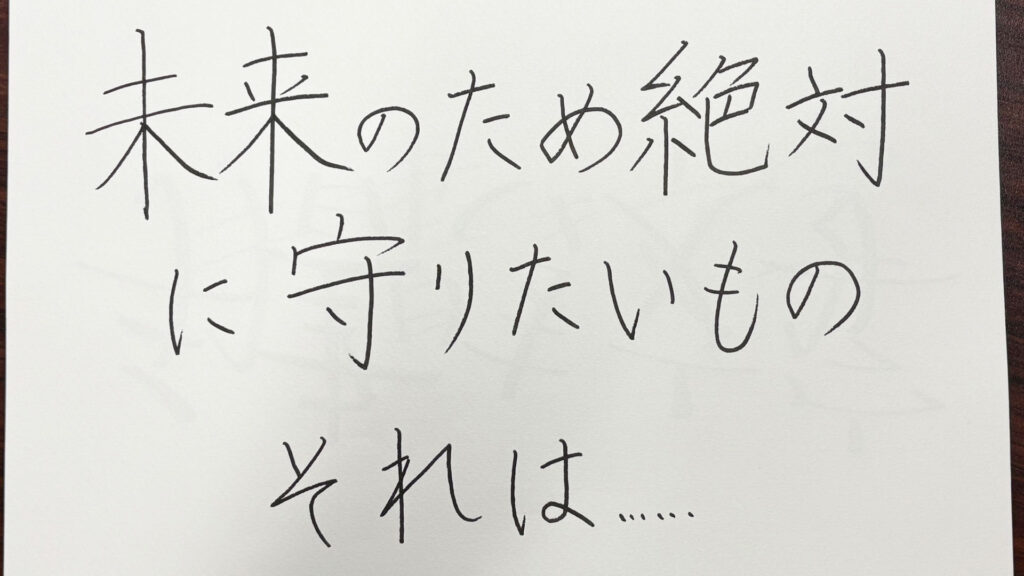 未来のため絶対
に守りたいもの
それは……